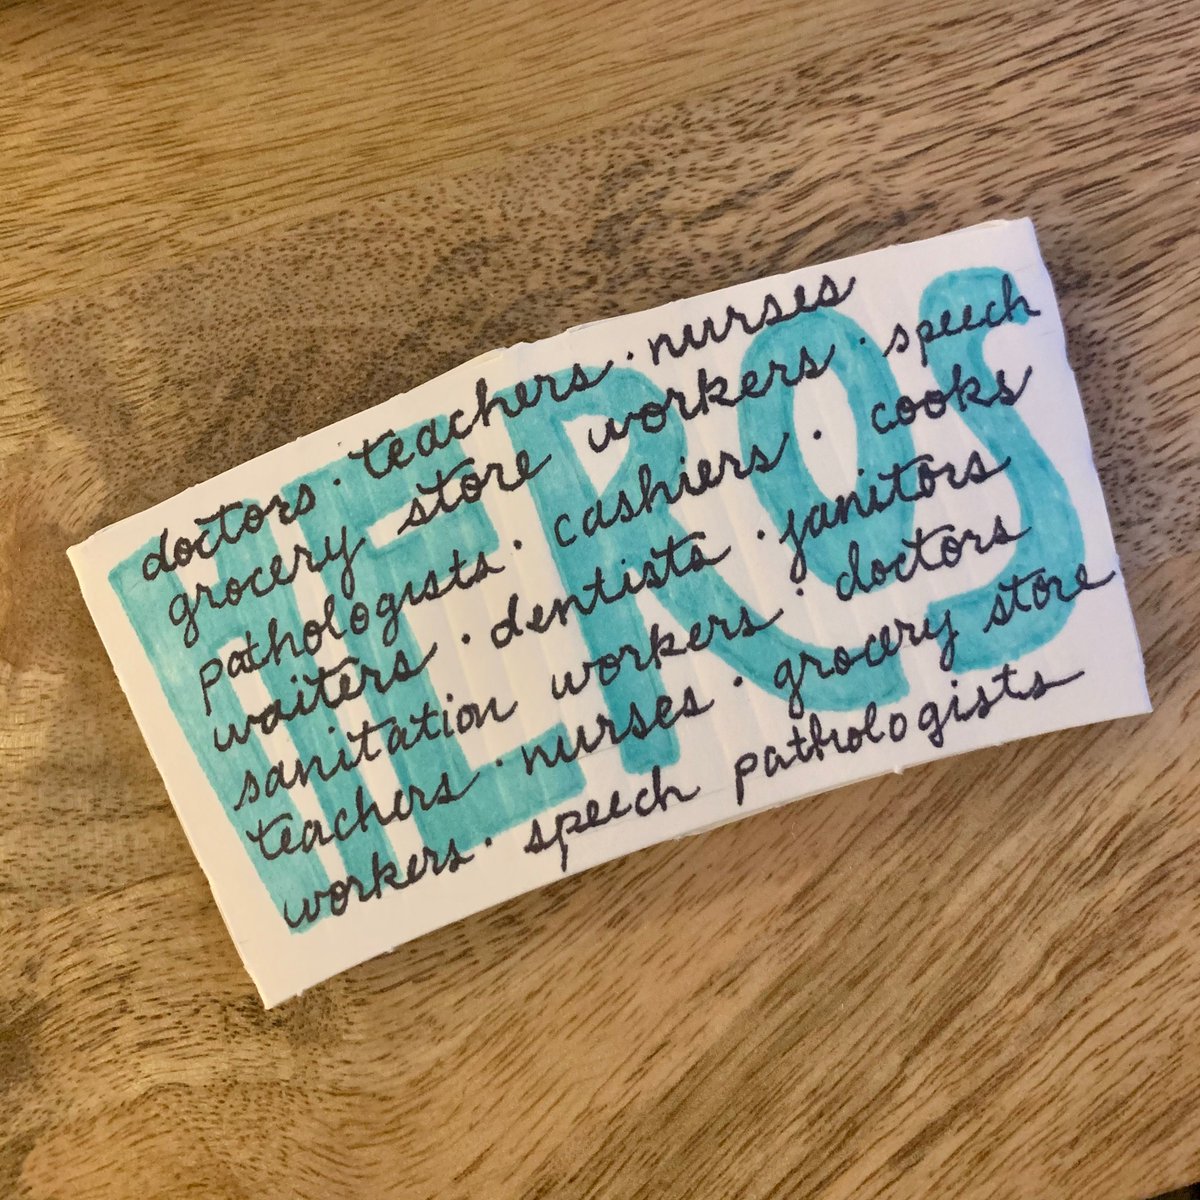 HEROS
doctors · teachers · nurses
grocery store workers · speech
pathologists · cashiers · cooks
waiters · dentists · janitors
sanitation workers · doctors
teachers · nurses · grocery store
workers · speech pathologists